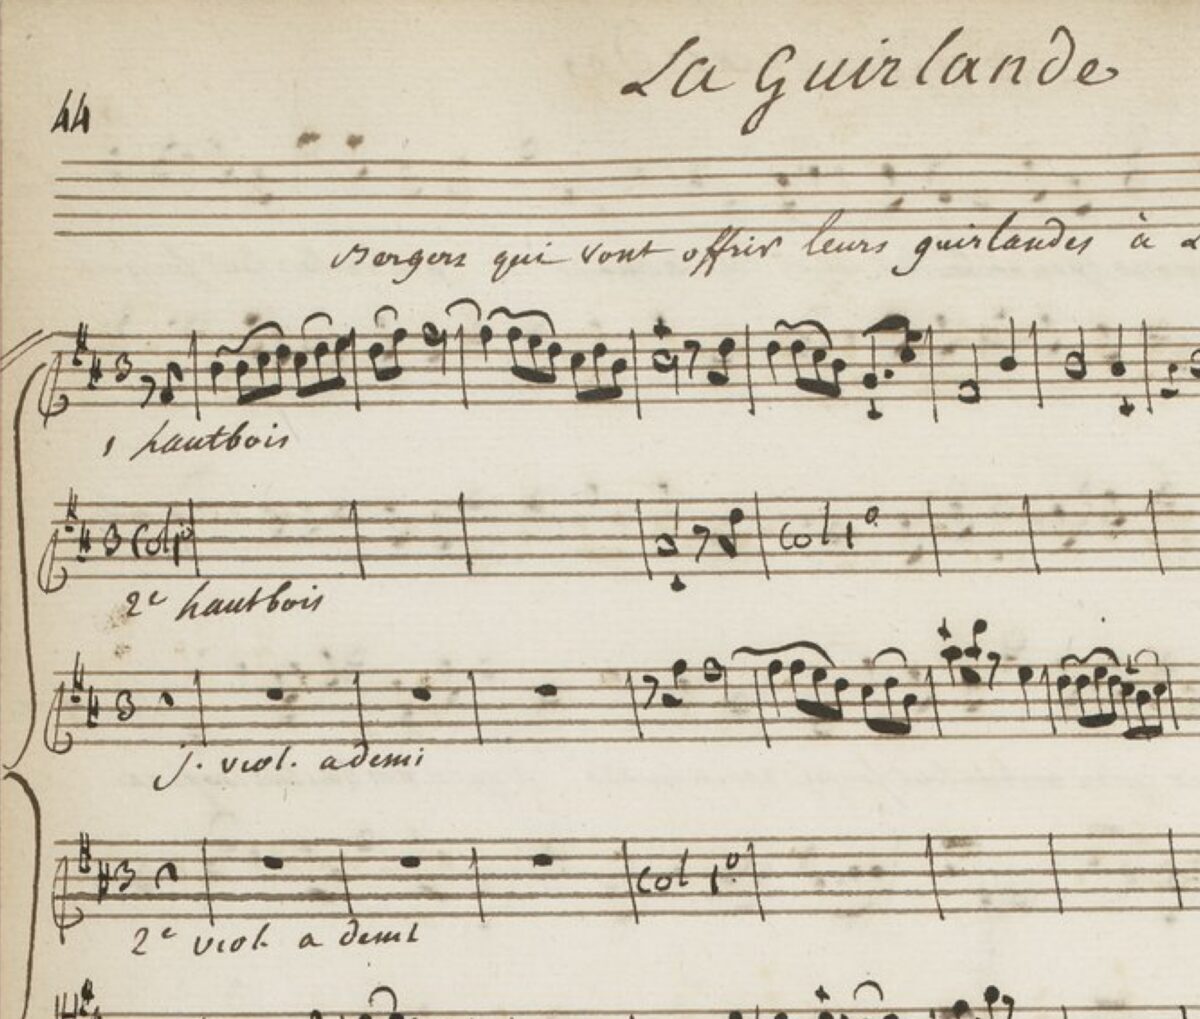 La Guirlande
44
Bergers qui vont offrir leurs guirlandes à
3
1 hautbois
3 Col 1º
col 1º
2e hautbois
3
j. viol. a demi
3
col 1º
2e viol. a demi